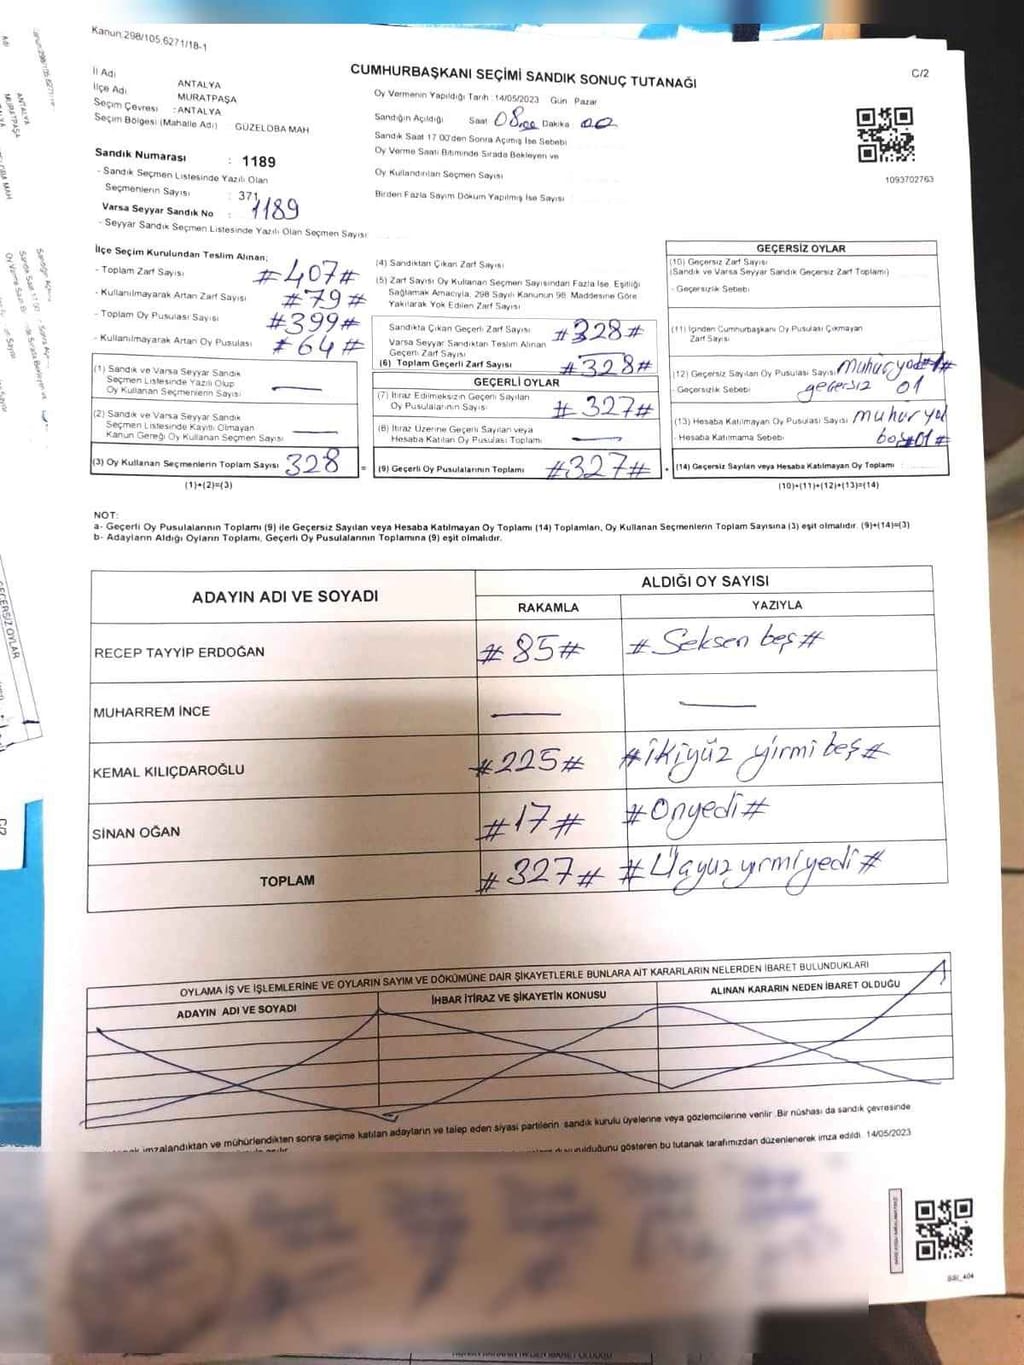 Kanun:298/105,6271/18-1
CUMHURBAŞKANI SEÇİMİ SANDIK SONUÇ TUTANAĞI
C/2
İl Adı ANTALYA
İlçe Adı MURATPAŞA
Seçim Çevresi : ANTALYA
Seçim Bölgesi (Mahalle Adı) GÜZELOBA MAH
Sandık Numarası : 1189
- Sandık Seçmen Listesinde Yazılı Olan
Seçmenlerin Sayısı : 371
Varsa Seyyar Sandık No : 1189
- Seyyar Sandık Seçmen Listesinde Yazılı Olan Seçmen Sayısı
Oy Vermenin Yapıldığı Tarih : 14/05/2023 Gün Pazar
Sandığın Açıldığı Saat 08.00 Dakika 00
Sandık Saat 17.00'den Sonra Açılmış İse Sebebi
Oy Verme Saati Bitiminde Sırada Bekleyen ve
Oy Kullandırılan Seçmen Sayısı
Birden Fazla Sayım Döküm Yapılmış İse Sayısı
1093702763
İlçe Seçim Kurulundan Teslim Alınan;
- Toplam Zarf Sayısı #407#
- Kullanılmayarak Artan Zarf Sayısı #79#
- Toplam Oy Pusulası Sayısı #399#
- Kullanılmayarak Artan Oy Pusulası #64#
(1) Sandık ve Varsa Seyyar Sandık
Seçmen Listesinde Yazılı Olup
Oy Kullanan Seçmenlerin Sayısı
(2) Sandık ve Varsa Seyyar Sandık
Seçmen Listesinde Kayıtlı Olmayan
Kanun Gereği Oy Kullanan Seçmen Sayısı
(3) Oy Kullanan Seçmenlerin Toplam Sayısı 328 =
(1)+(2)=(3)
(4) Sandıktan Çıkan Zarf Sayısı
(5) Zarf Sayısı Oy Kullanan Seçmen Sayısından Fazla İse, Eşitliği
Sağlamak Amacıyla, 298 Sayılı Kanunun 98. Maddesine Göre
Yakılarak Yok Edilen Zarf Sayısı
Sandıkta Çıkan Geçerli Zarf Sayısı #328#
Varsa Seyyar Sandıktan Teslim Alınan
Geçerli Zarf Sayısı
(6) Toplam Geçerli Zarf Sayısı #328#
GEÇERLİ OYLAR
(7) İtiraz Edilmeksizin Geçerli Sayılan
Oy Pusulalarının Sayısı #327#
(8) İtiraz Üzerine Geçerli Sayılan veya
Hesaba Katılan Oy Pusulası Toplamı
(9) Geçerli Oy Pusulalarının Toplamı #327# +
GEÇERSİZ OYLAR
(10) Geçersiz Zarf Sayısı
(Sandık ve Varsa Seyyar Sandık Geçersiz Zarf Toplamı)
- Geçersizlik Sebebi
(11) İçinden Cumhurbaşkanı Oy Pusulası Çıkmayan
Zarf Sayısı
(12) Geçersiz Sayılan Oy Pusulası Sayısı mühür yok #1#
- Geçersizlik Sebebi geçersiz 01
(13) Hesaba Katılmayan Oy Pusulası Sayısı muhur yok
- Hesaba Katılmama Sebebi boş #01#
(14) Geçersiz Sayılan veya Hesaba Katılmayan Oy Toplamı
(10)+(11)+(12)+(13)=(14)
NOT:
a- Geçerli Oy Pusulalarının Toplamı (9) ile Geçersiz Sayılan veya Hesaba Katılmayan Oy Toplamı (14) Toplamları, Oy Kullanan Seçmenlerin Toplam Sayısına (3) eşit olmalıdır. (9)+(14)=(3)
b- Adayların Aldığı Oyların Toplamı, Geçerli Oy Pusulalarının Toplamına (9) eşit olmalıdır.
ADAYIN ADI VE SOYADI
ALDIĞI OY SAYISI
RAKAMLA YAZIYLA
RECEP TAYYİP ERDOĞAN #85# #Seksen beş#
MUHARREM İNCE
KEMAL KILIÇDAROĞLU #225# #ikiyüz yirmi beş#
SİNAN OĞAN #17# #Onyedi#
TOPLAM #327# #Üçyüz yirmiyedi#
OYLAMA İŞ VE İŞLEMLERİNE VE OYLARIN SAYIM VE DÖKÜMÜNE DAİR ŞİKAYETLERLE BUNLARA AİT KARARLARIN NELERDEN İBARET BULUNDUKLARI
ADAYIN ADI VE SOYADI İHBAR İTİRAZ VE ŞİKAYETİN KONUSU ALINAN KARARIN NEDEN İBARET OLDUĞU
imzalandıktan ve mühürlendikten sonra seçime katılan adayların ve talep eden siyasi partilerin sandık kurulu üyelerine veya gözlemcilerine verilir. Bir nüshası da sandık çevresinde
duyurulduğunu gösteren bu tutanak tarafımızdan düzenlenerek imza edildi. 14/05/2023